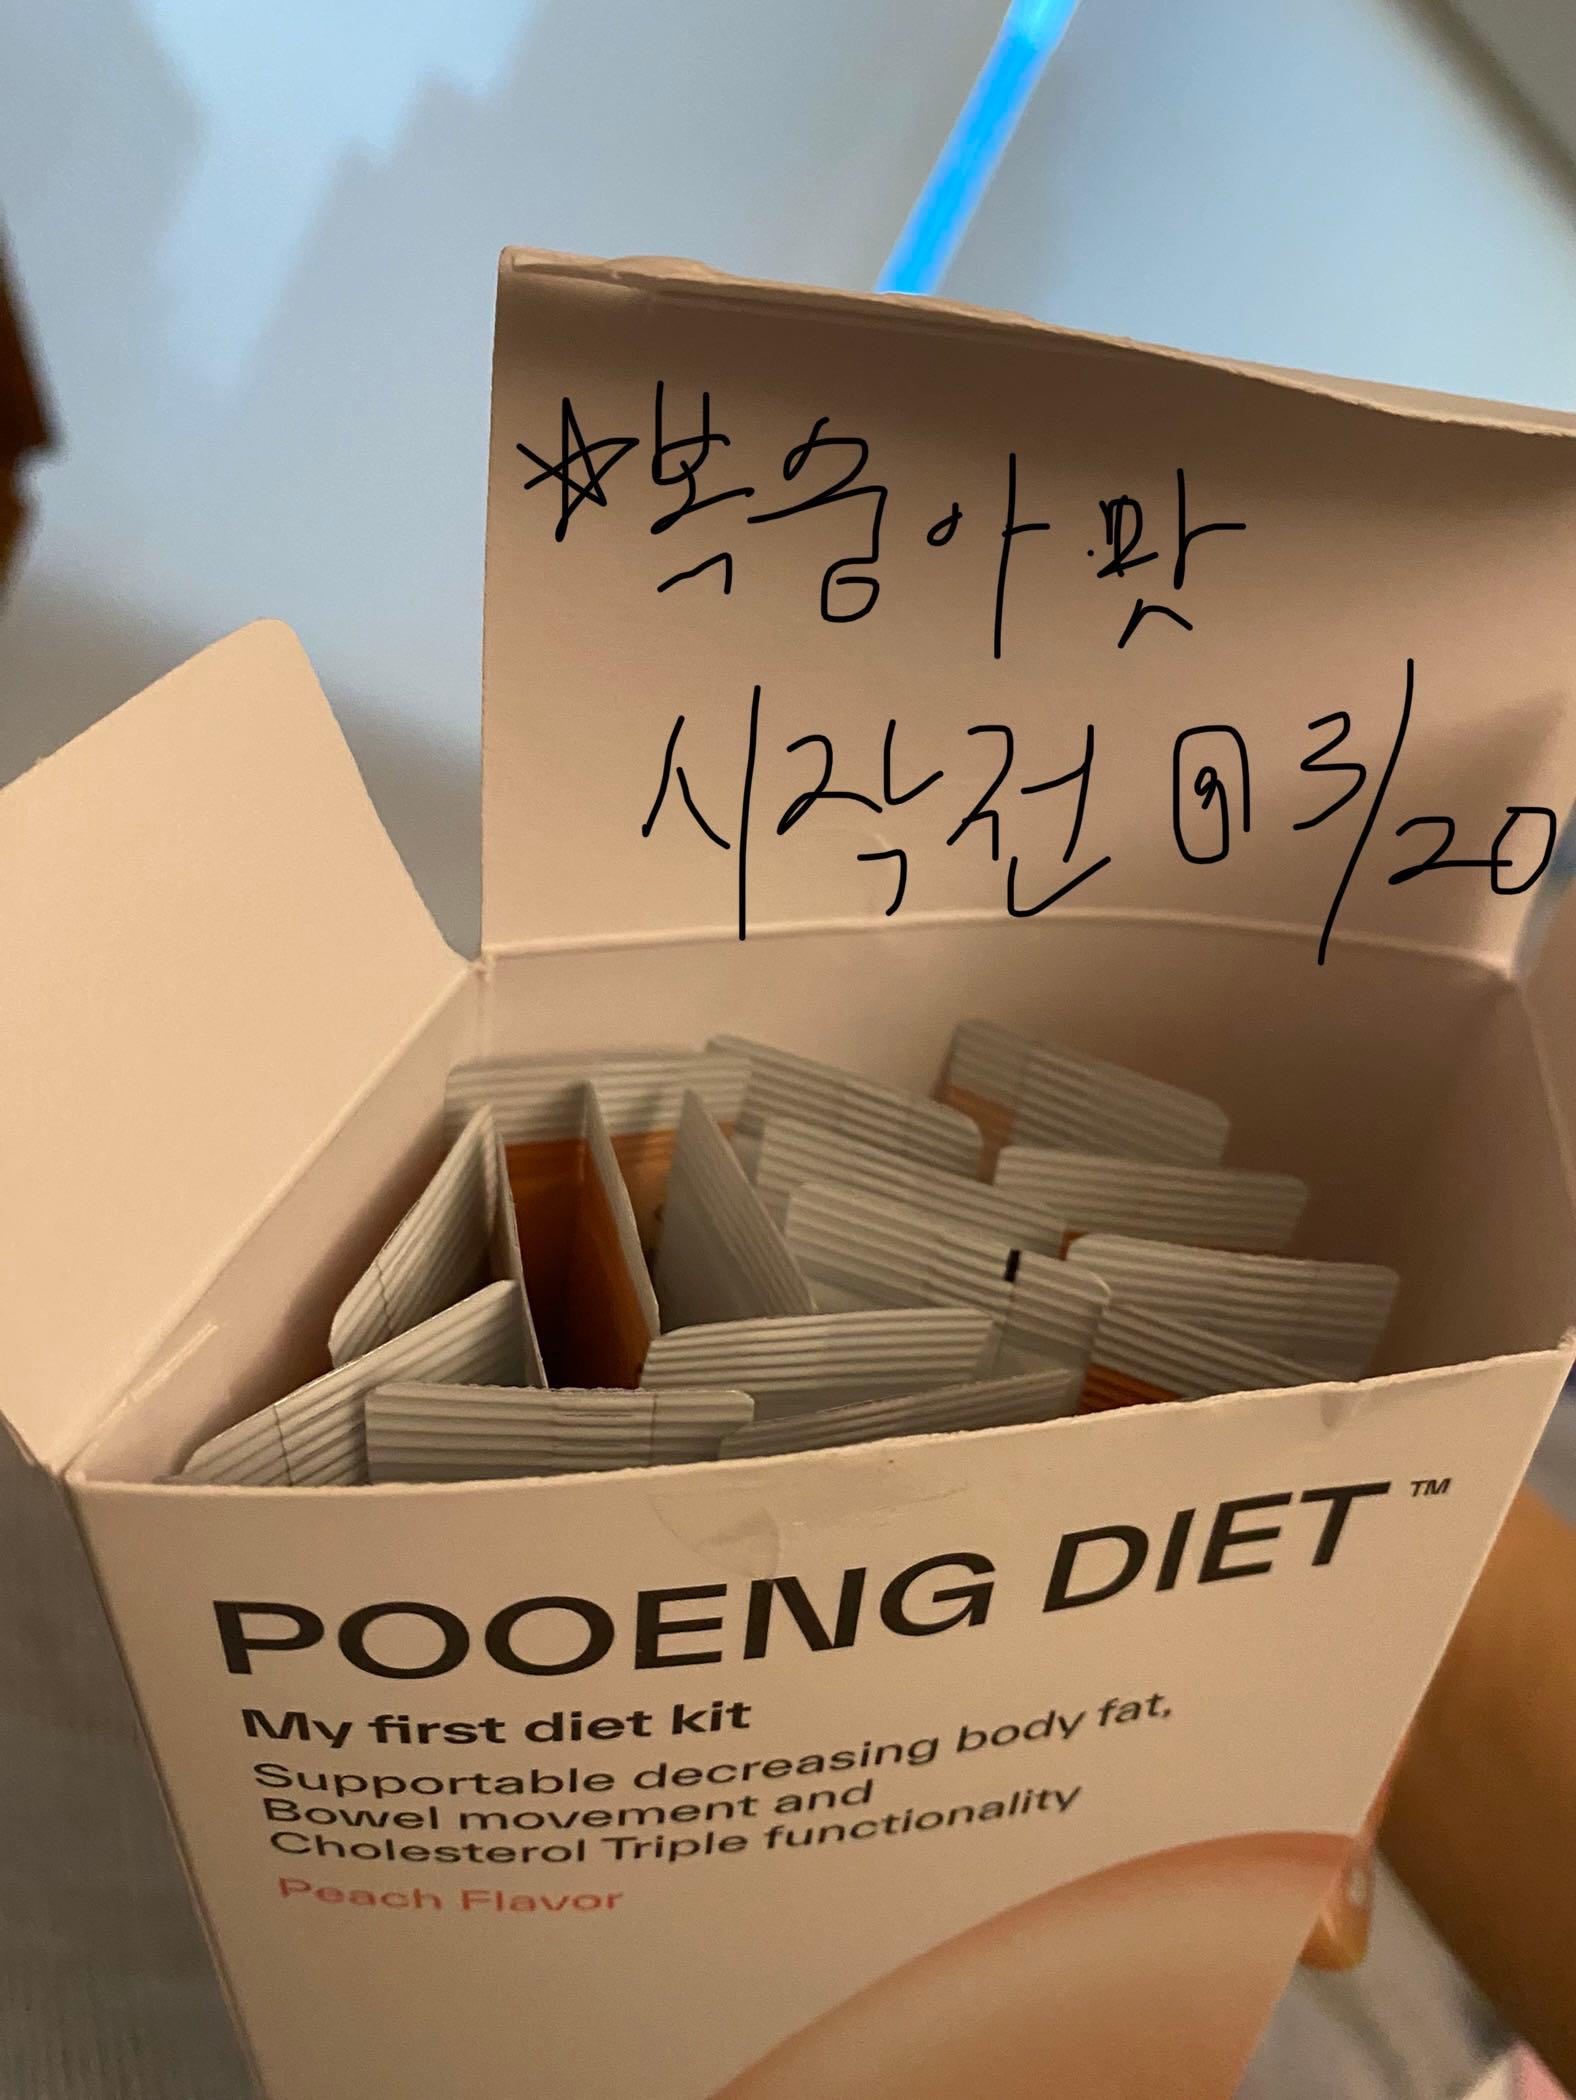 ☆복숭아 맛
시작전 3/20
POOENG DIET™
My first diet kit
Supportable decreasing body fat,
Bowel movement and
Cholesterol Triple functionality
Peach Flavor